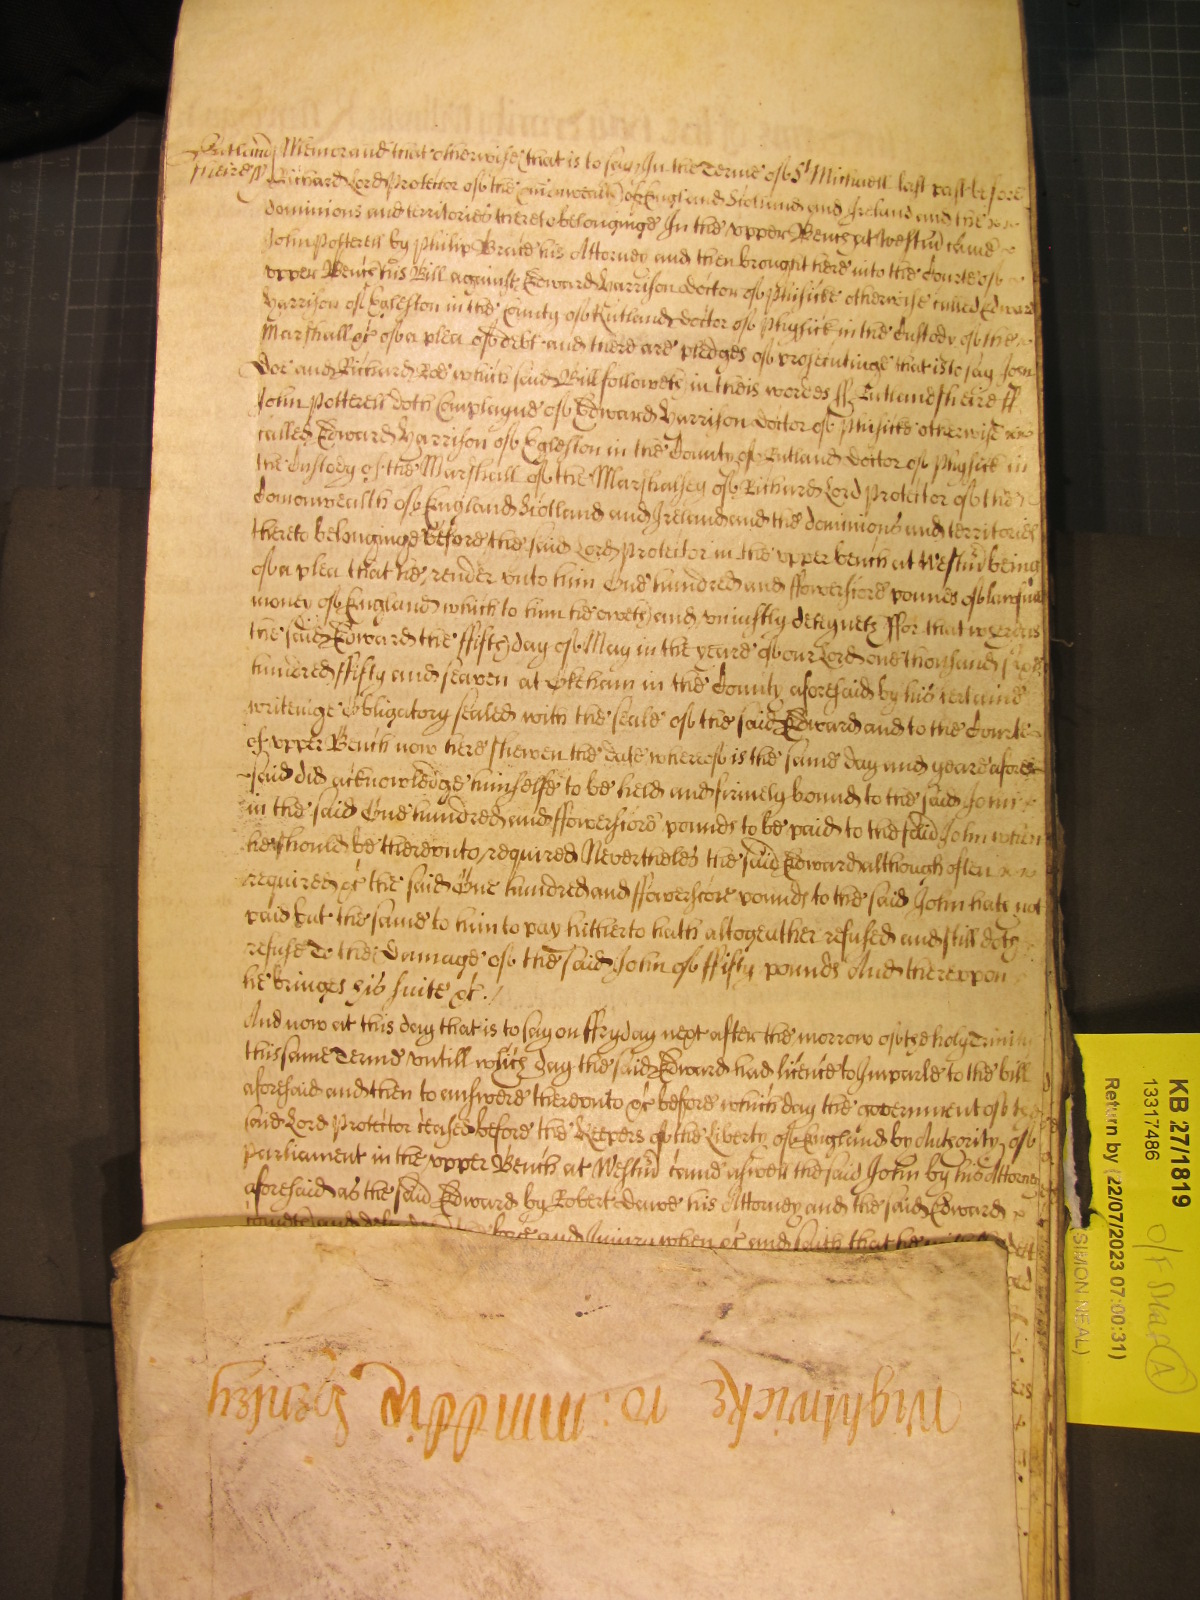 Rutland sheire ss Memorand that otherwise that is to say In the Terme of St Michaell last past before
Richard Lord Protector of the Comonwealth of England Scotland and Ireland and the
dominions and territories thereto belonginge In the vpper Bench at Westm came
John Potterell by Philip Brace his Attorney and then brought here into the Courte of
vpper Bench his Bill against Edward Harrison doctor of Phisicke otherwise called Edward
Harrison of Egleston in the County of Rutland doctor of Phisick in the Custody of the
Marshall &c of a plea of debt and there are pledges of prosecutinge that is to say John
Doe and Richard Roe which said Bill followeth in theis wordes ss Rutlandsheire ss
John Potterell doth Complayne of Edward Harrison doctor of Phisicke otherwise
called Edward Harrison of Egleston in the County of Rutland doctor of Physick in
the Custody of the Marshall of the Marshalsey of Richard Lord Protector of the
Comonwealth of England Scotland and Ireland and the dominions and territories
thereto belonginge before the said Lord Protector in the vpper bench at Westm being
of a plea that he render vnto him One hundred and ffowerscore pounds of lawfull
money of England which to him he oweth and vniustly deteyneth ffor that whereas
the said Edward the ffifth day of May in the yeare of our Lord one thousand six
hundred ffifty and seaven at Okeham in the County aforesaid by his certaine
writeinge Obligatory sealed with the seale of the said Edward and to the Courte
of vpper Bench now here shewen the date whereof is the same day and yeare afore
said did acknowledge himselfe to be held and firmely bound to the said John
in the said One hundred and ffowerscore pounds to be paid to the said John when
he should be therevnto required Nevertheles the said Edward although often
required &c the said One hundred and ffowerscore pounds to the said John hath not
paid but the same to him to pay hitherto hath altogeather refused and still doth
refuse To the Damage of the said John of ffifty pounds And therevpon
he bringes his suite &c.
And now at this day that is to say on ffryday next after the morrow of the holy Trinity
this same Terme vntill which day the said Edward had licence to Imparle to the bill
aforesaid and then to answere therevnto &c before which day the government of the
said Lord Protector ceased before the Keepers of the Liberty of England by Authority of
Parliament in the vpper Bench at Westm came aswell the said John by his Attorney
aforesaid as the said Edward by Robert Dawe his Attorney and the said Edward
and Iniury when &c and saith that he
Wightwicke ro: Henley
KB 27/1819
13317486
Return by (22/07/2023 07:00:31)
SIMON NEAL)
A